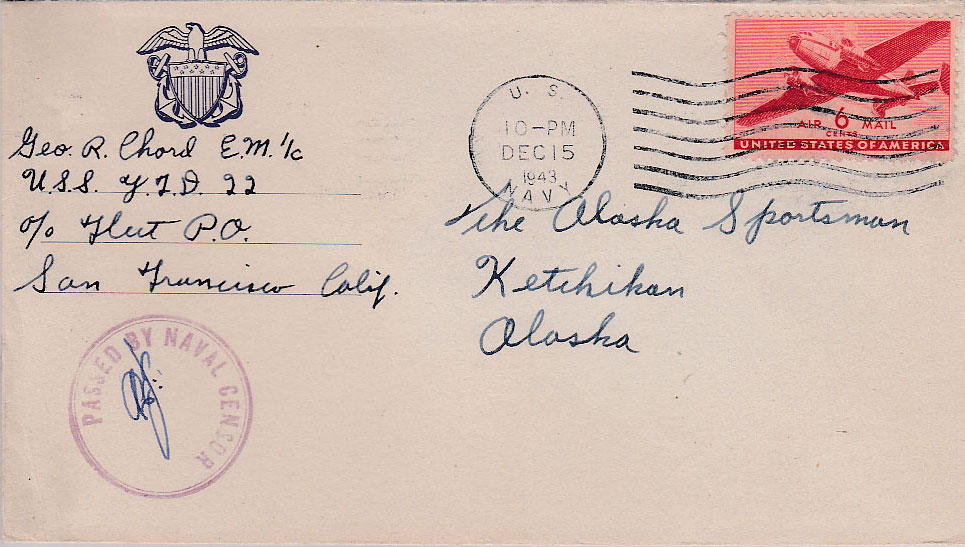 Geo. R. Chord E.M. 1/c
U.S.S. Y.F.D. 22
c/o Fleet P.O.
San Francisco Calif.
U. S.
10-PM
DEC 15
1943
NAVY
AIR 6 MAIL
CENTS
UNITED STATES OF AMERICA
The Alaska Sportsman
Ketchikan
Alaska
PASSED BY NAVAL CENSOR